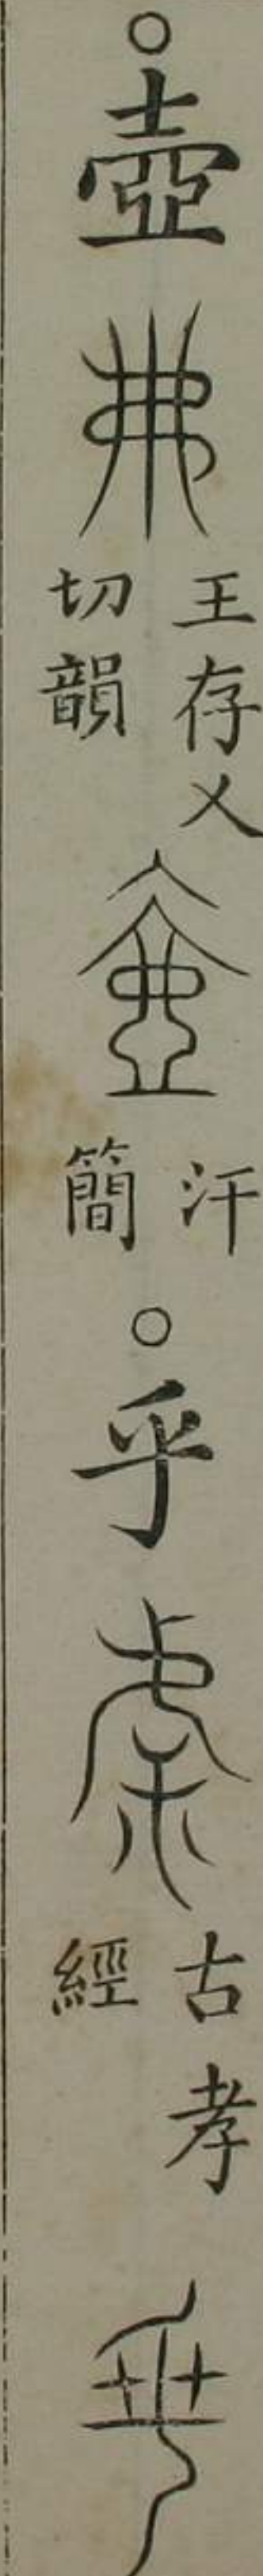 ○壺 王存乂切韻 汗簡○乎 古孝經